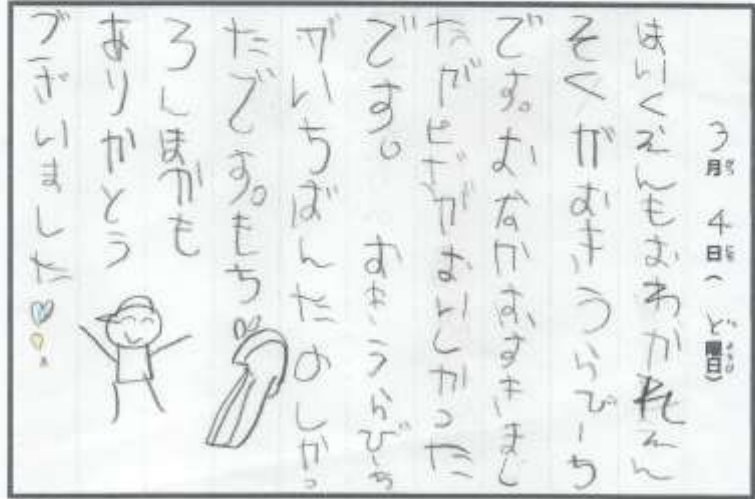 3月 4日(ど曜日)
ほいくえんもおわかれえん
そくがおきうらびーち
です。おなかおすきまし
たがピザがおいしかった
です。 おきうらびーち
がいちばんたのしかっ
たです。もち
ろんほかも
ありがとう
ございました